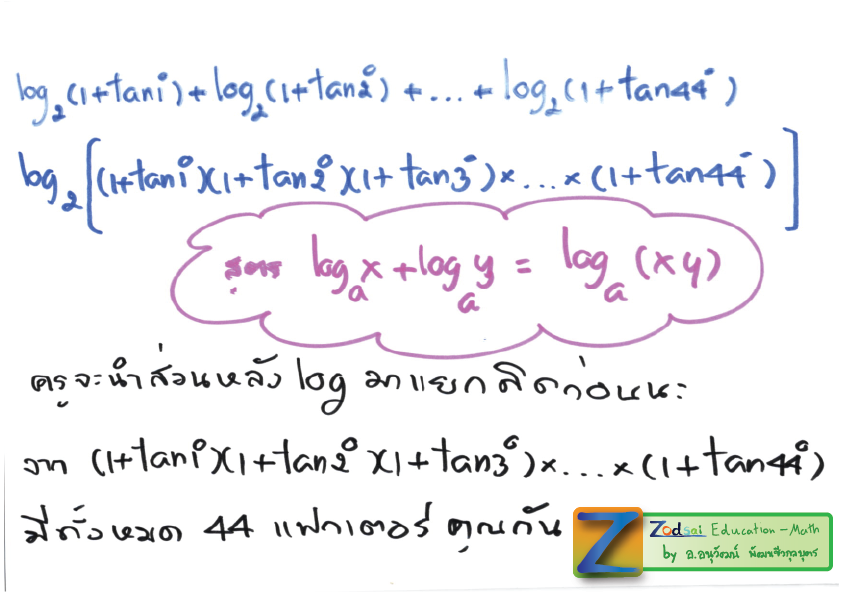 log₂(1+tan1°)+log₂(1+tan2°)+...+log₂(1+tan44°)
log₂[(1+tan1°)(1+tan2°)(1+tan3°)×...×(1+tan44°)]
สูตร logₐx+logₐy = logₐ(xy)
ครูจะนำส่วนหลัง log มาแยกคิดก่อนนะ
จาก (1+tan1°)(1+tan2°)(1+tan3°)×...×(1+tan44°)
มีทั้งหมด 44 แฟกเตอร์ คูณกัน
Z Zodsai Education-Math
by อ.อนุวัฒน์ พัฒนชีวกุลบุตร